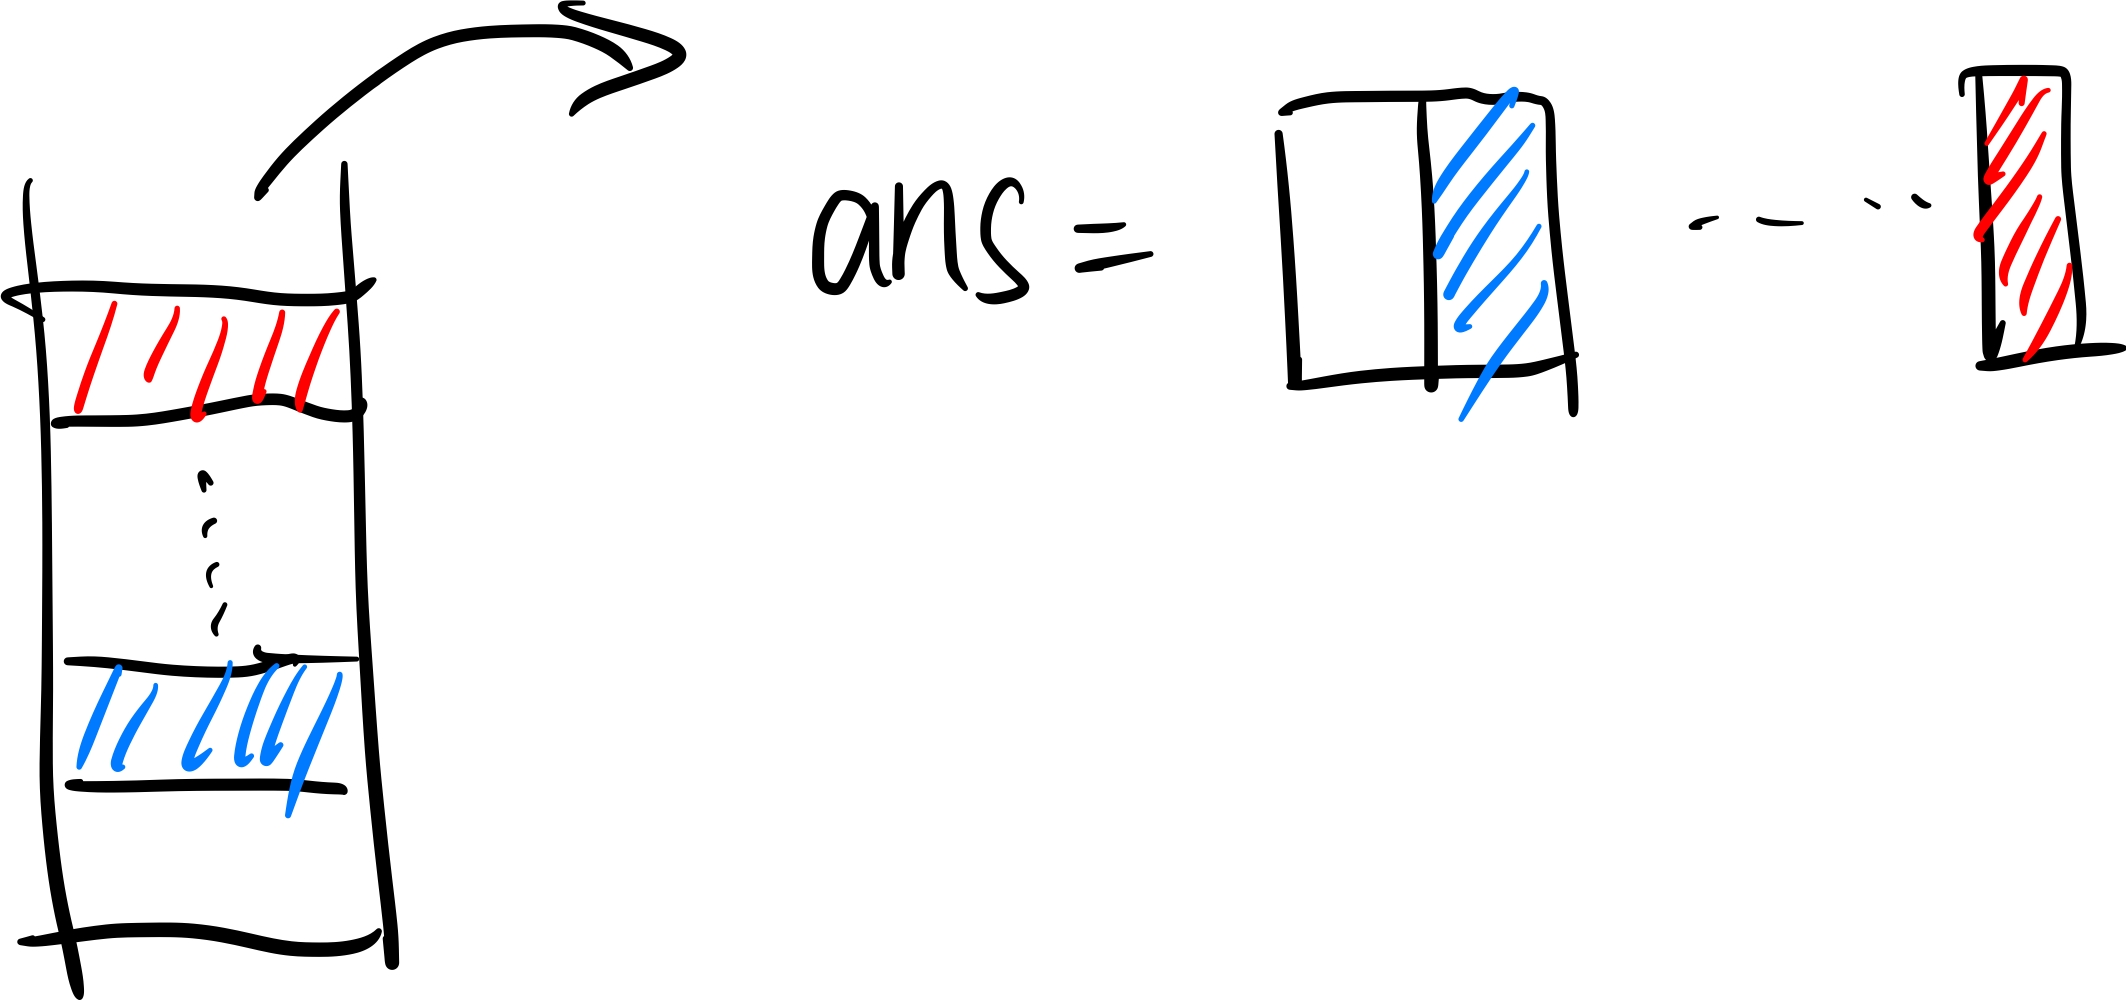 ans =